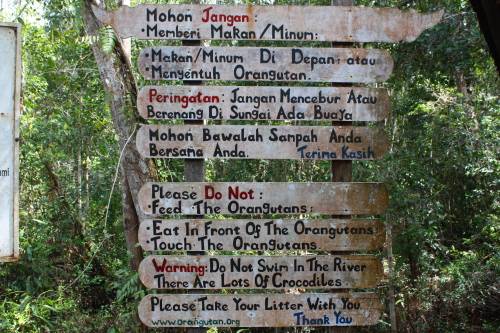 Mohon Jangan:
•Memberi Makan/Minum:
•Makan/Minum Di Depan: atau
•Menyentuh Orangutan.
Peringatan: Jangan Mencebur Atau
Berenang Di Sungai Ada Buaya
Mohon Bawalah Sampah Anda
Bersama Anda. Terima Kasih
Please Do Not:
•Feed The Orangutans:
•Eat In Front Of The Orangutans
•Touch The Orangutans.
Warning: Do Not Swim In The River
There Are Lots Of Crocodiles
Please Take Your Litter With You.
www.orangutan.org Thank You